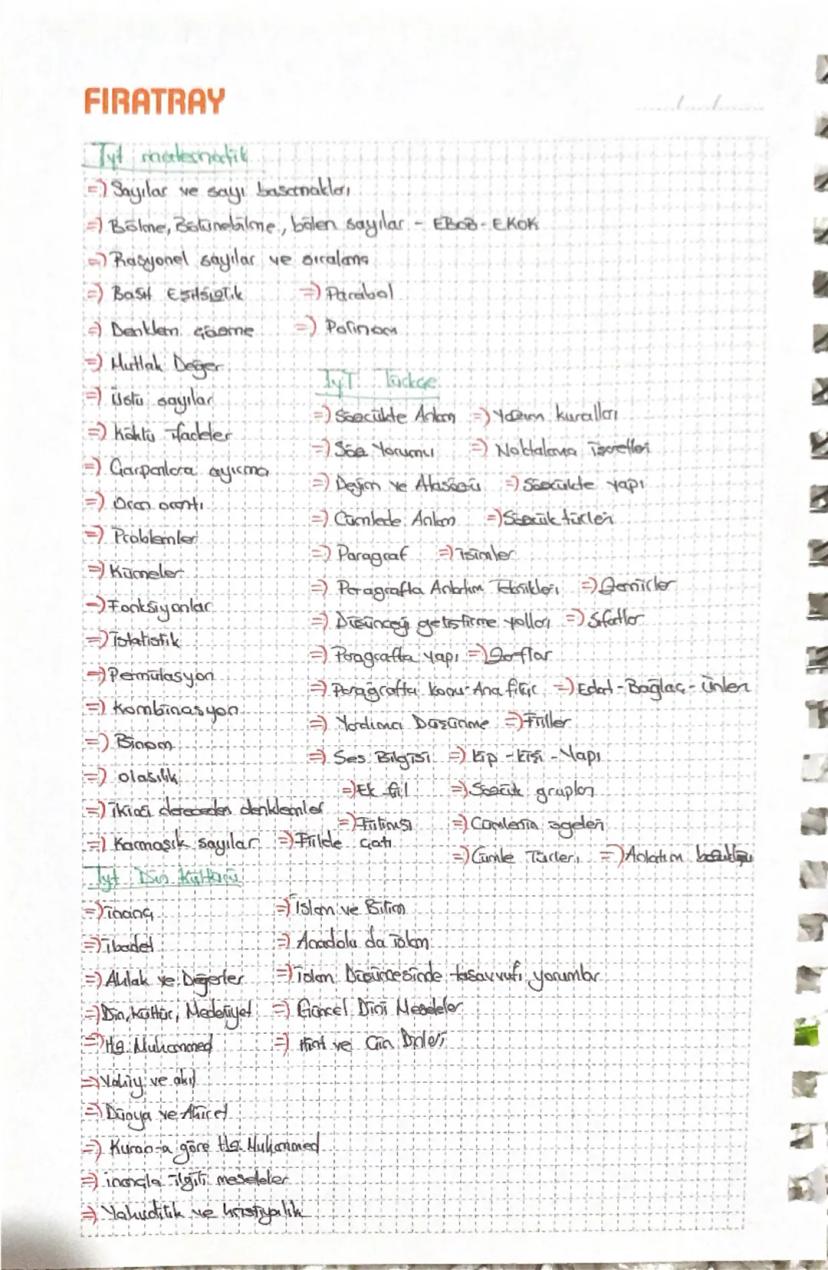 FIRATRAY
Tyt matematik
=) Sayılar ve sayı basamakları
=) Bölme, Bölünebilme, bölen sayılar - EBOB - EKOK
=) Rasyonel sayılar ve sıralama
=) Basit Eşitsizlik =) Parabol
=) Denklem çözme =) Polinom
=) Mutlak Değer
=) Üslü sayılar
=) Köklü ifadeler
=) Çarpanlara ayırma
=) Oran orantı
=) Problemler
=) Kümeler
=) Fonksiyonlar
=) İstatistik
=) Permütasyon
=) Kombinasyon
=) Binom
=) olasılık
=) ikinci dereceden denklemler
=) Karmaşık sayılar
TYT Türkçe
=) Sözcükte Anlam =) Yazım kuralları
=) Söz Yorumu =) Noktalama İşaretleri
=) Deyim ve Atasözü =) Sözcükte yapı
=) Cümlede Anlam =) Sözcük türleri
=) Paragraf =) İsimler
=) Paragrafta Anlatım Teknikleri =) Zamirler
=) Düşünceyi geliştirme yolları =) Sıfatlar
=) Paragrafta yapı =) Zarflar
=) Paragrafta konu-Ana fikir =) Edat-Bağlaç-ünlem
=) Yardımcı Düşünme =) Fiiller
=) Ses Bilgisi =) Kip - Kişi - Yapı
=) Ek fiil =) Sözcük grupları
=) Fiilimsi =) Cümlenin ögeleri
=) Fiilde çatı
=) Cümle Türleri =) Anlatım bozukluğu
Tyt Din Kültürü
=) inanç =) İslam ve Bilim
=) ibadet =) Anadolu da islam
=) Ahlak ve Değerler =) islam Düşüncesinde tasavvufi yorumlar
=) Din, kültür, Medeniyet =) Güncel Dini Meseleler
=) Hz. Muhammed =) Hint ve Çin Dinleri
=) Vahiy ve akıl
=) Dünya ve Ahiret
=) Kuran-a göre Hz. Muhammed
=) inançla ilgili meseleler
=) Yahudilik ve hristiyanlık